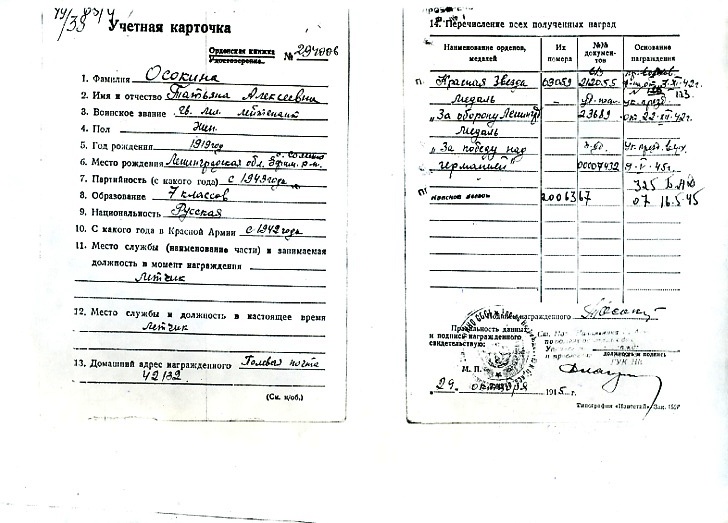 Учетная карточка
Орденская книжка № 294006
Удостоверение
1. Фамилия Осокина
2. Имя и отчество Татьяна Алексеевна
3. Воинское звание гв. мл. лейтенант
4. Пол жен.
5. Год рождения 1919 год
6. Место рождения Ленинградская обл.
7. Партийность (с какого года) с 1942 года
8. Образование 7 классов
9. Национальность Русская
10. С какого года в Красной Армии с 1942 года
11. Место службы (наименование части) и занимаемая
должность в момент награждения
Летчик
12. Место службы и должность в настоящее время
Летчик
13. Домашний адрес награжденного Полевая почта
42132
(См. н/об.)
14. Перечисление всех полученных наград
Наименование орденов, медалей
Их номера
№№ документов
Основание награждения
Красная Звезда 03059 212055
Медаль
„За оборону Ленингр 23689 от 22-XII-42г.
Медаль
„За победу над
Германией" 00007432 9-V-45г.
Красное знамя 20063 67 07 16.5.45
Подпись награжденного
Правильность данных
и подписи награжденного
свидетельствую:
должность и подпись
М. П.
„29" октября 1945 г.